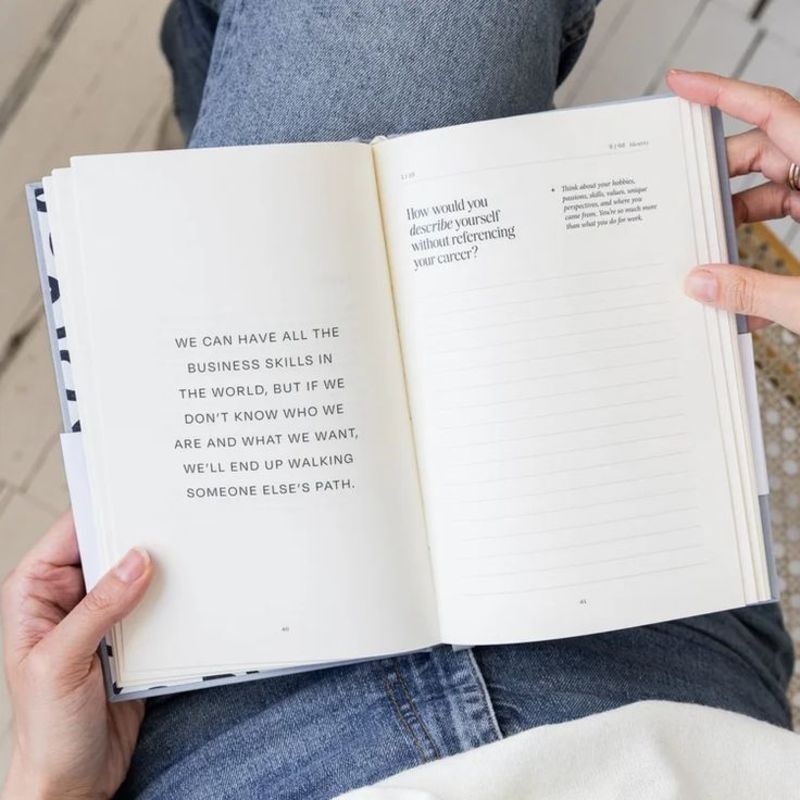 WE CAN HAVE ALL THE
BUSINESS SKILLS IN
THE WORLD, BUT IF WE
DON'T KNOW WHO WE
ARE AND WHAT WE WANT,
WE'LL END UP WALKING
SOMEONE ELSE'S PATH.
40
Identity
How would you
describe yourself
without referencing
your career?
• Think about your hobbies,
passions, skills, values, unique
perspectives, and where you
came from. You're so much more
than what you do for work.
41